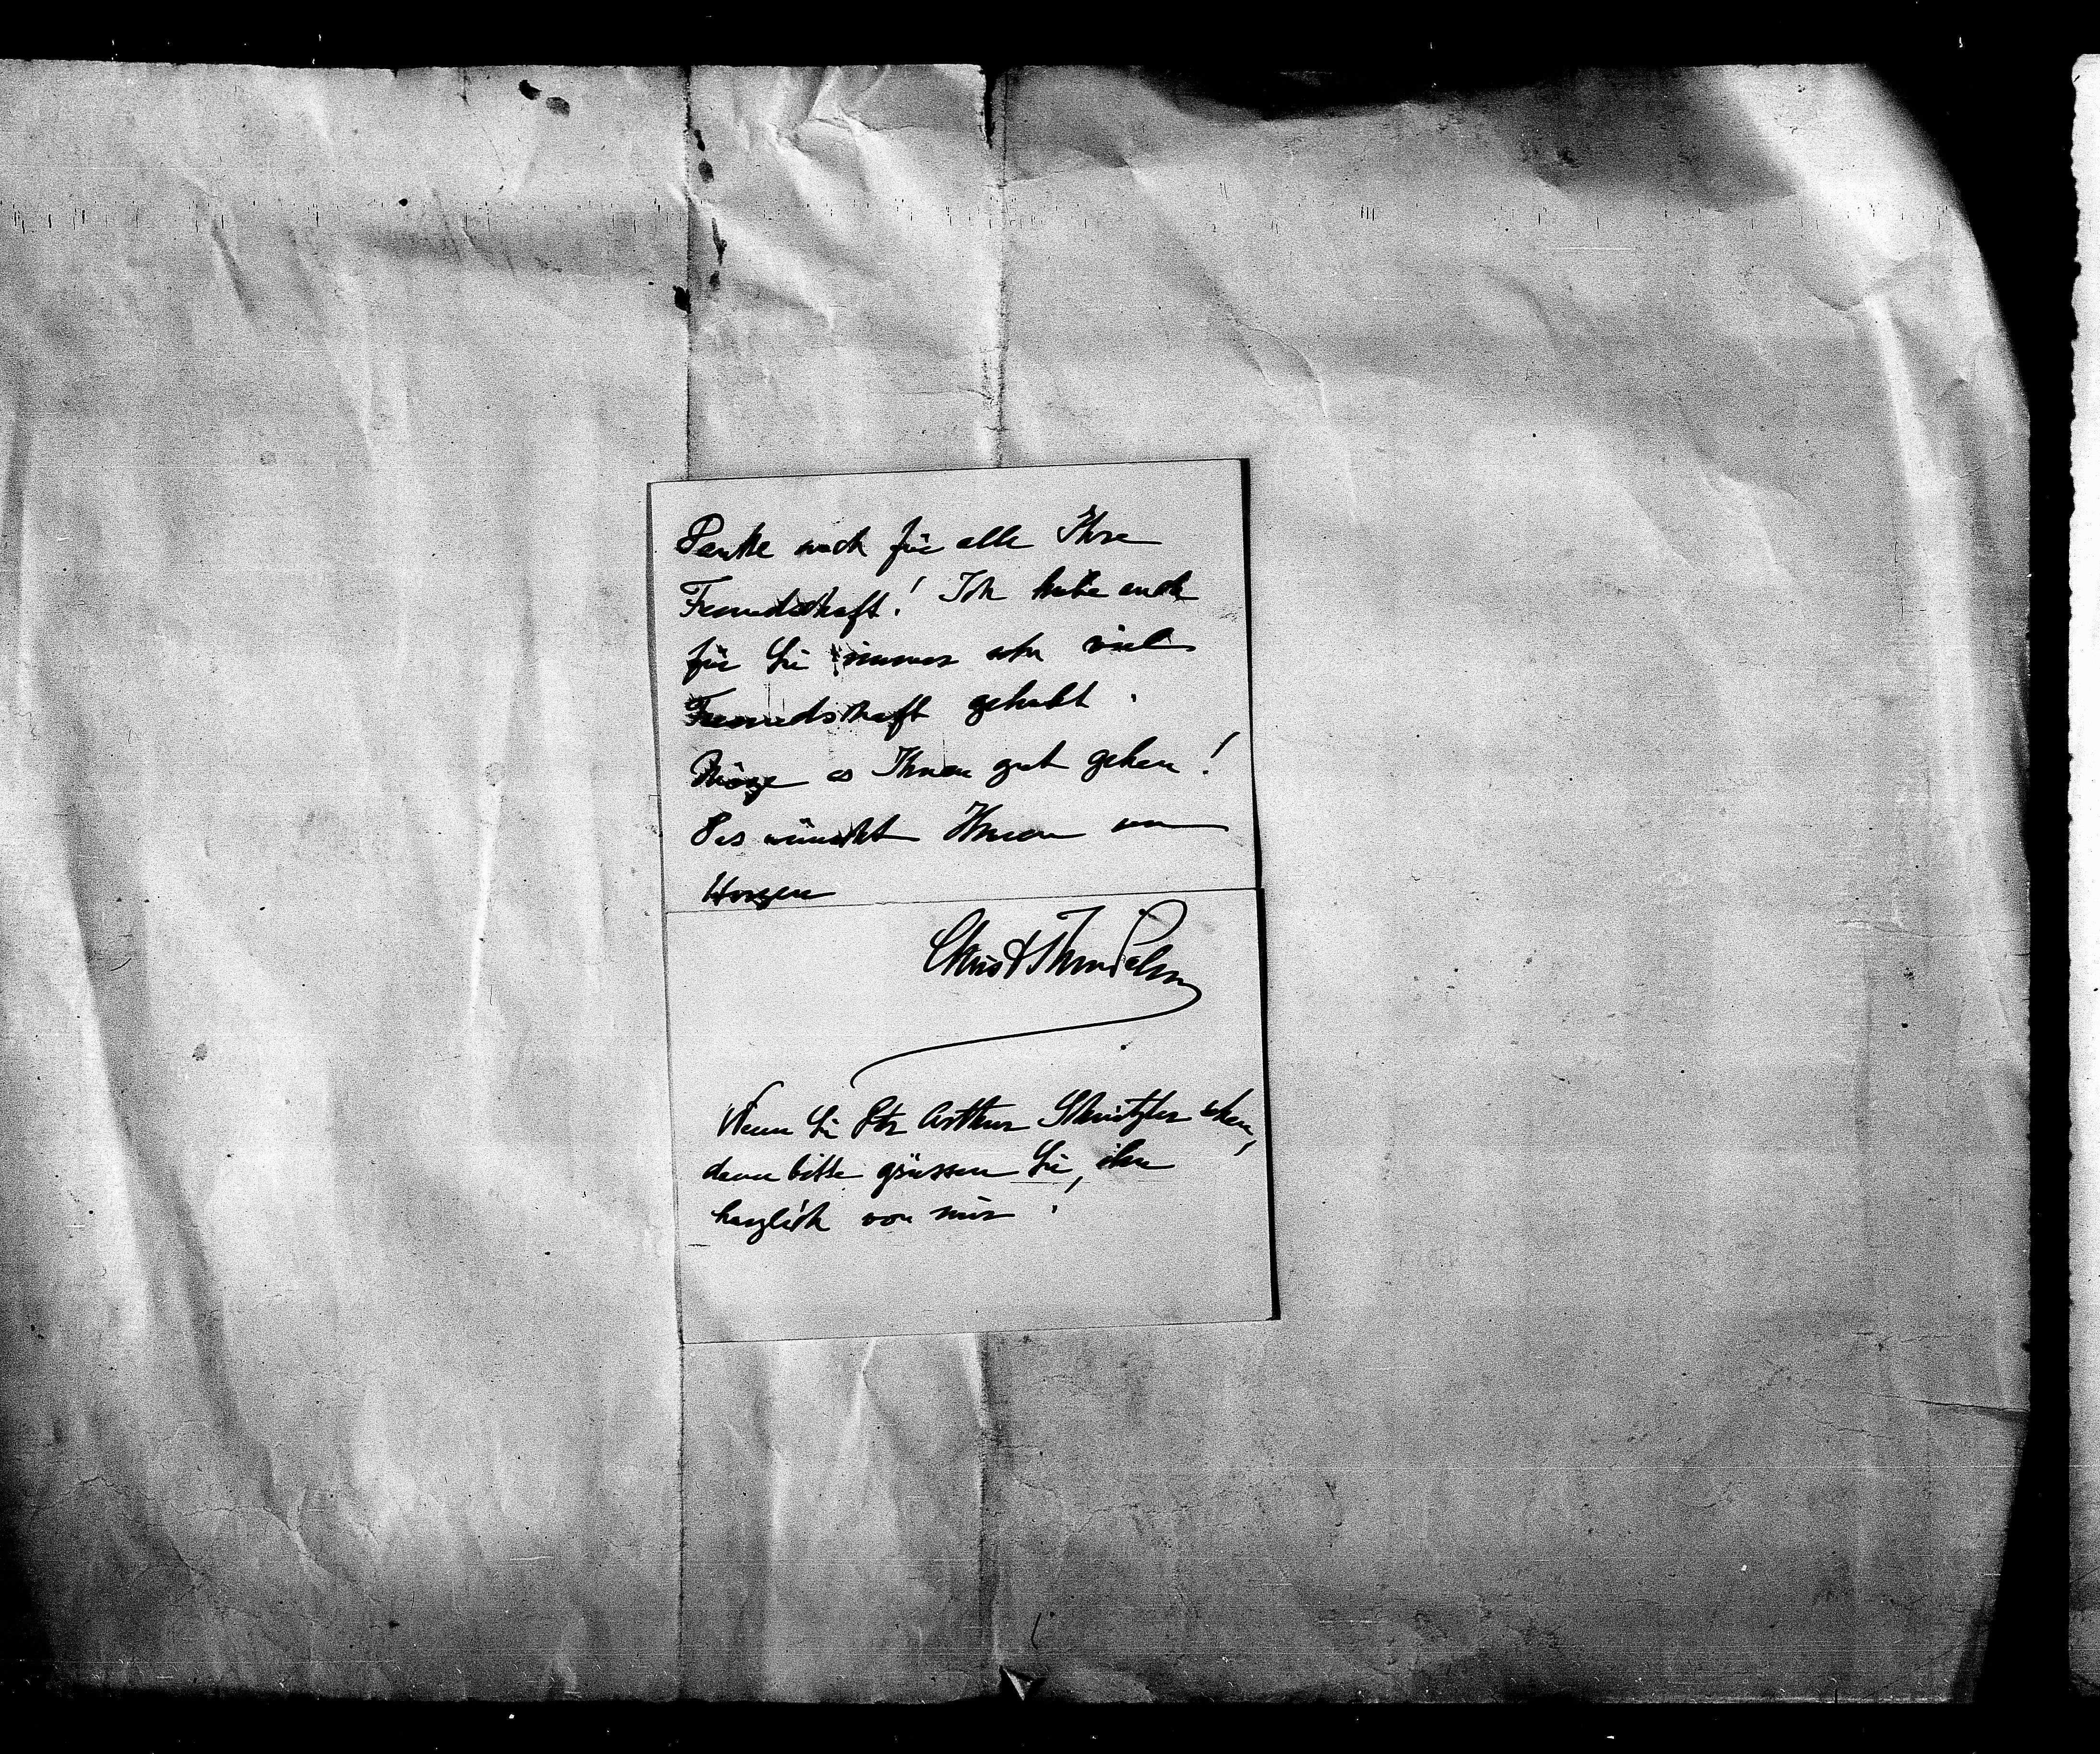 Danke noch für alle Ihre
Freundschaft! Ich habe auch
für Sie immer sehr viel
Freundschaft gehabt.
Möge es Ihnen gut gehen!
Das wünscht Ihnen von
Herzen
Wenn Sie Dr Arthur Schnitzler sehen,
dann bitte grüssen Sie, ihn
herzlich von mir.